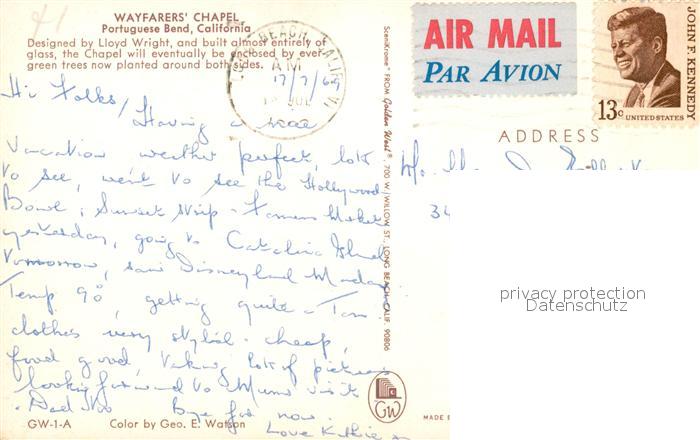 41
WAYFARERS' CHAPEL
Portuguese Bend, California
Designed by Lloyd Wright, and built almost entirely of
glass, the Chapel will eventually be enclosed by ever-
green trees now planted around both sides.
BEACH, CALIF.
AM
17/7/69
JUL
Hi Folks, Having a nice
vacation weather perfect, lots
to see, went to see the Hollywood
Bowl, Sunset Strip - Farmers Market
yesterday, going to Catalina Island
tomorrow, saw Disneyland Monday
Temp 90°, getting quite a Tan.
clothes very stylish - cheap,
food good, taking lots of pictures
looking forward to Mums visit
. Dad too Bye for now.
Love Kathie
GW-1-A Color by Geo. E. Watson
SceniKrome® FROM Golden West®, 700 W. WILLOW ST., LONG BEACH, CALIF. 90806
GW
MADE
AIR MAIL
PAR AVION
JOHN F. KENNEDY
13c UNITED STATES
ADDRESS
34
privacy protection
Datenschutz